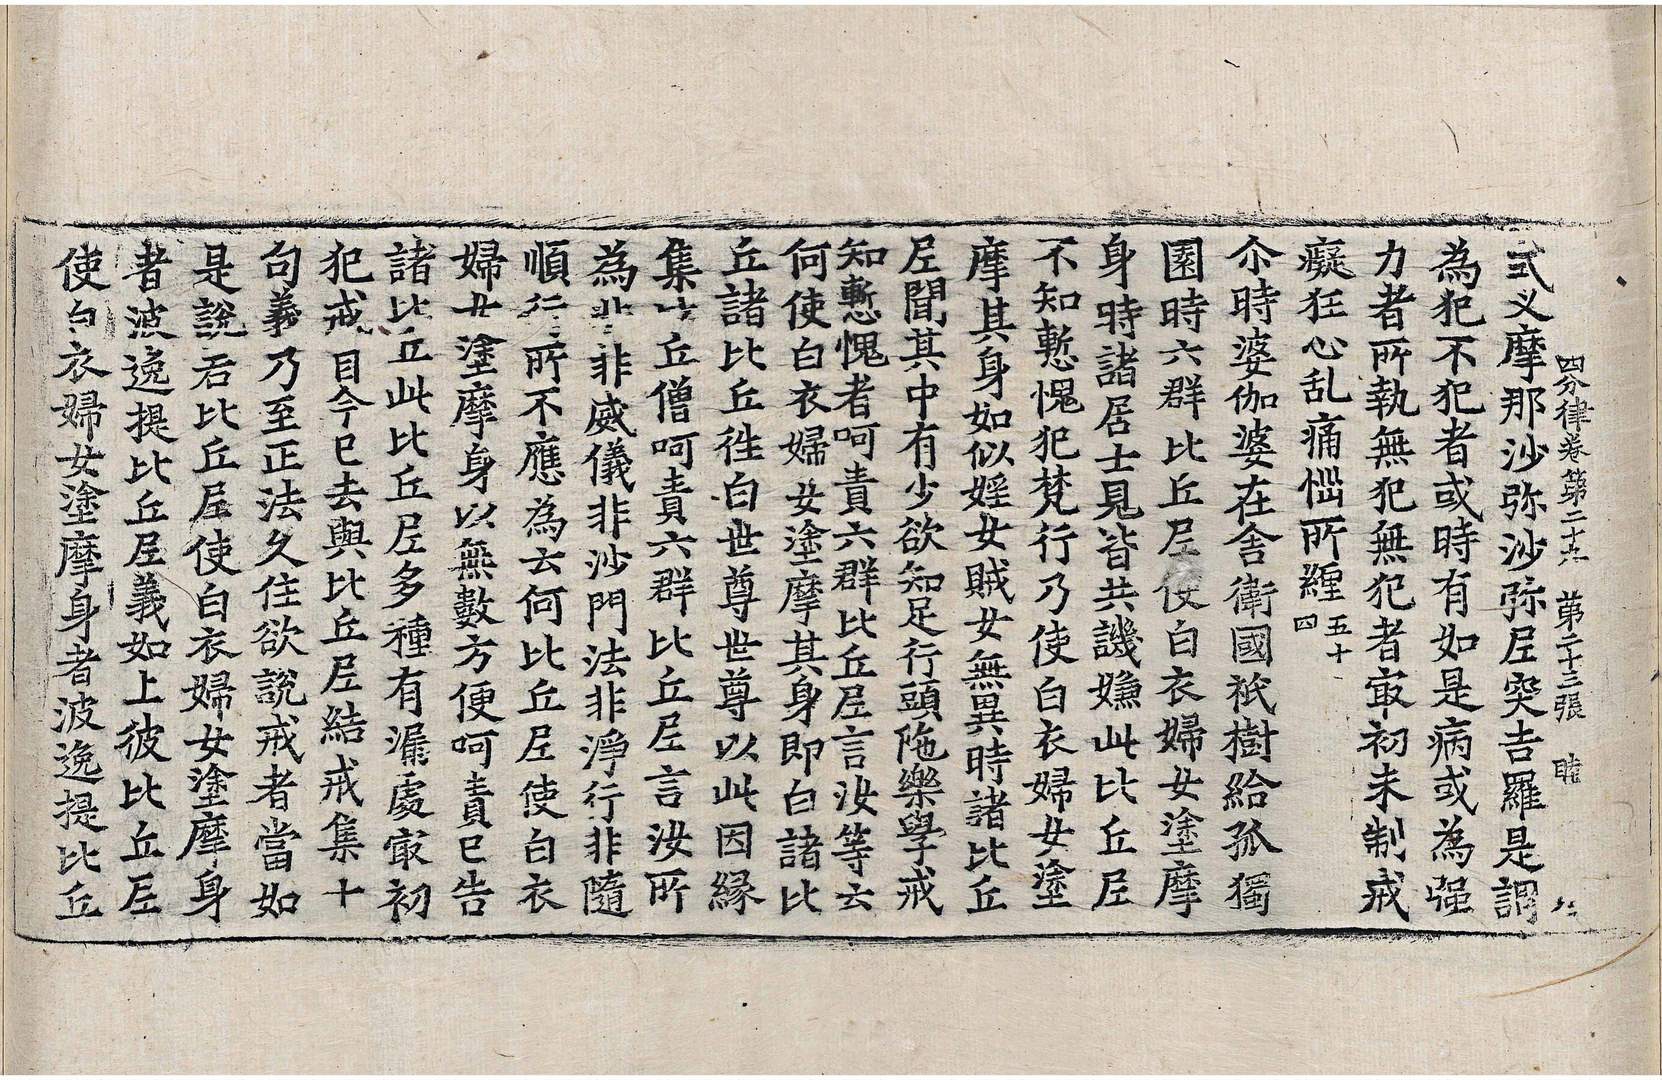 四分律卷第二十九 第二十三張 睦
式叉摩那沙弥沙弥尼突吉羅是謂
為犯不犯者或時有如是病或為强
力者所執無犯無犯者寂初未制戒
癡狂心乱痛惱所纏五十四
尒時婆伽婆在舍衛國祇樹給孤獨
園時六群比丘尼使白衣婦女塗摩
身時諸居士見皆共譏嫌此比丘尼
不知慙愧犯梵行乃使白衣婦女塗
摩其身如似婬女賊女無異時諸比丘
尼聞其中有少欲知足行頭陁樂學戒
知慙愧者呵責六群比丘尼言汝等云
何使白衣婦女塗摩其身即白諸比
丘諸比丘徃白世尊世尊以此因緣
集比丘僧呵責六群比丘尼言汝所
為非非威儀非沙門法非淨行非隨
順行所不應為云何比丘尼使白衣
婦女塗摩身以無數方便呵責已告
諸比丘此比丘尼多種有漏處寂初
犯戒自今已去與比丘尼結戒集十
句義乃至正法久住欲說戒者當如
是說若比丘尼使白衣婦女塗摩身
者波逸提比丘尼義如上彼比丘尼
使白衣婦女塗摩身者波逸提比丘